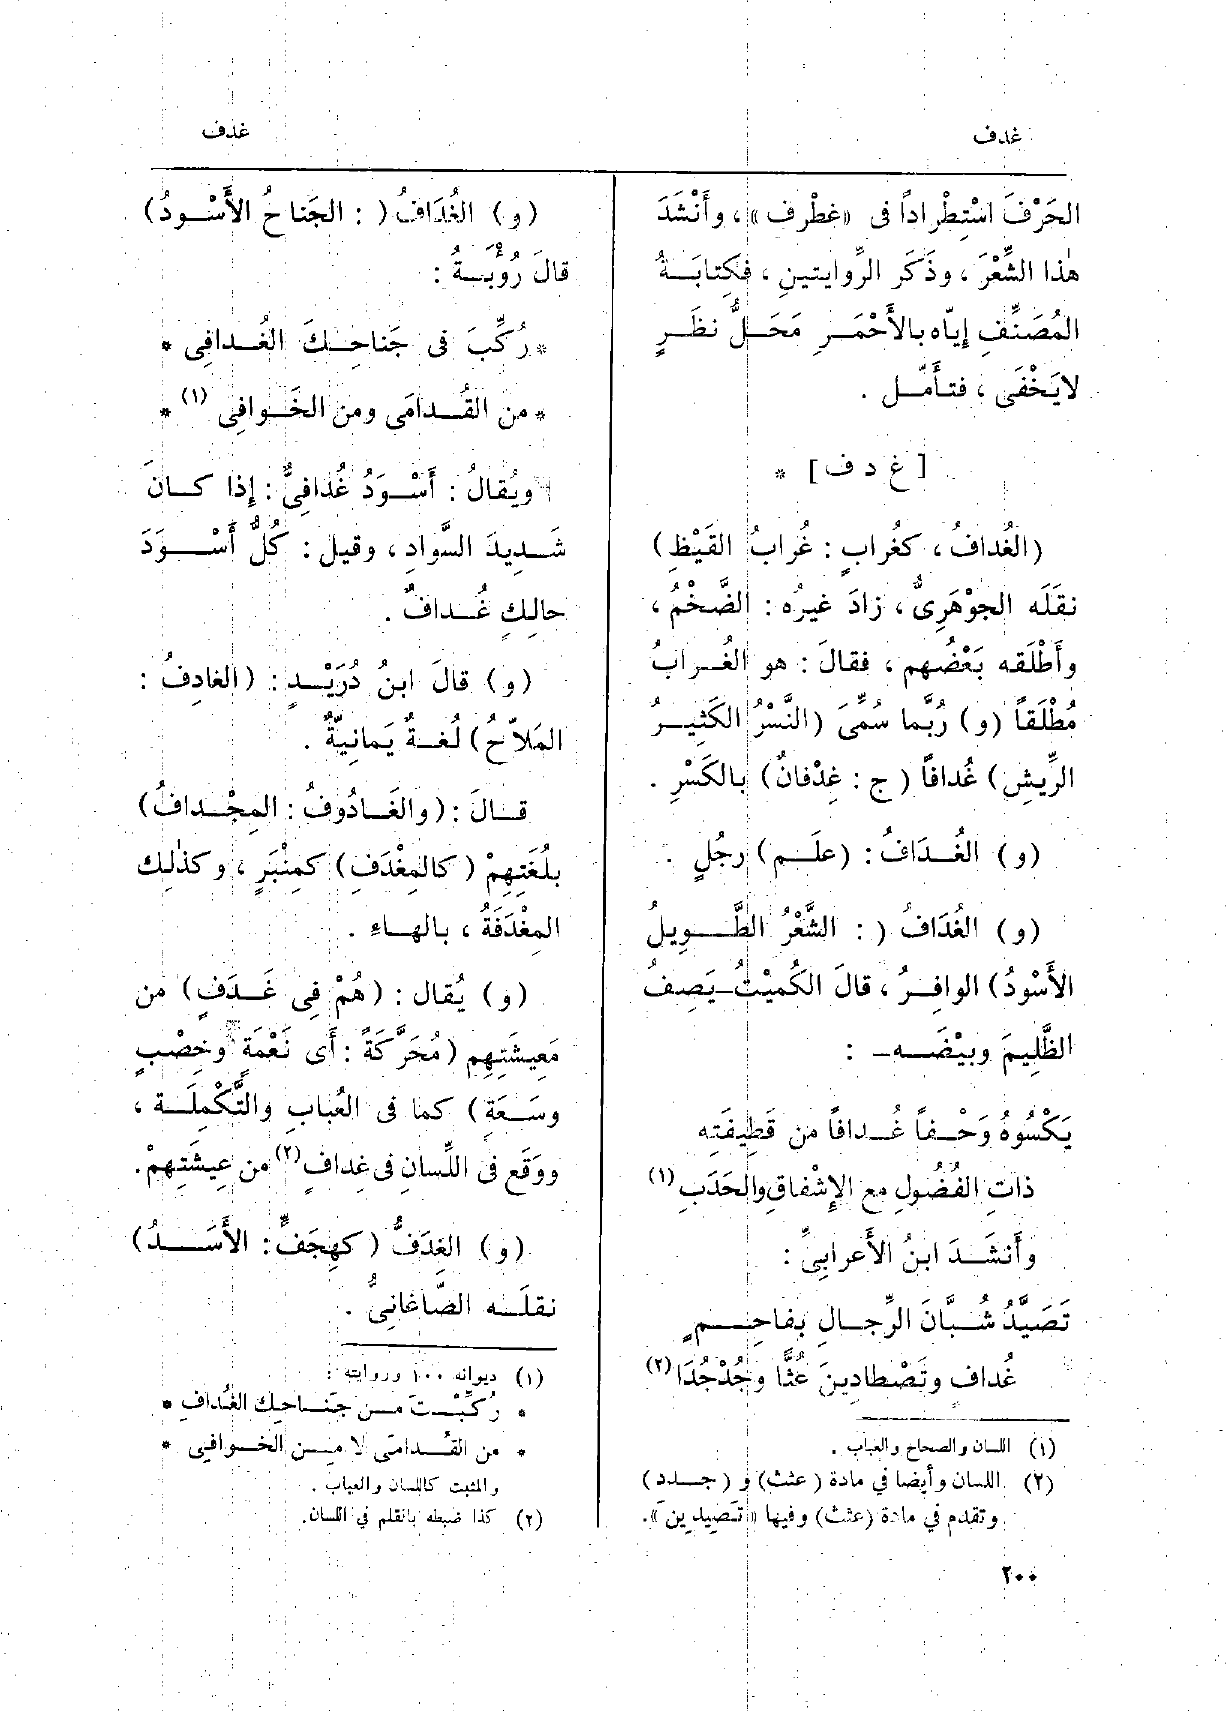 غدف
غدف
الحَرْفَ اسْتِطْراداً فى «غطْرف»، وأَنْشَدَ
هٰذا الشِّعْرَ، وذَكَر الرِّوايتينِ، فكِتابَةُ
المُصَنِّفِ إيّاه بالأَحْمَرِ مَحَلُّ نظَرٍ
لايَخْفَى، فتأَمّل.
[غ د ف] *
(الغُدافُ، كغُرابٍ: غُرابُ القَيْظِ)
نقَلَه الجوْهَرِىُّ، زادَ غيرُه: الضَّخْمُ،
وأَطْلَقه بَعْضُهم، فقالَ: هو الغُرابُ
مُطْلَقاً (و) رُبَّما سُمِّىَ (النَّسْرُ الكَثِيرُ
الرِّيشِ) غُدافًا (ج: غِدْفانٌ) بالكَسْرِ.
(و) الغُدَافُ: (علَم) رجُلٍ.
(و) الغُدَافُ (: الشَّعْرُ الطَّوِيلُ
الأَسْودُ) الوافِرُ، قالَ الكُميْتُ ـ يَصِفُ
الظَّلِيمَ وبيْضَه ـ :
يَكْسُوهُ وَحْفاً غُدافًا من قَطِيفَتِه
ذاتِ الفُضُولِ مع الإِشْفاقِ والحَدَبِ (١)
وأَنشَدَ ابنُ الأَعرابِىِّ:
تَصَيَّدُ شُبَّانَ الرِّجالِ بفاحِمٍ
غُدافٍ وتَصْطادِينَ عُثًّا وجُدْجُدَا (٢)
(١) اللسان والصحاح والعباب.
(٢) اللسان وأيضا في مادة (عثث) و (جدد)
وتقدم في مادة (عثث) وفيها «تَصيدين».
٢٠٠
(و) الغُدَافُ (: الجَناحُ الأَسْودُ)
قالَ رُؤْبَةُ:
* رُكِّبَ فى جَناحِكَ الغُدافِى *
* من القُدامَى ومن الخَوافِى (١) *
ويُقالُ: أَسْوَدُ غُدافِىٌّ: إذا كانَ
شَدِيدَ السَّوادِ، وقيل: كُلُّ أَسْوَدَ
حالِكٍ غُدافٌ.
(و) قالَ ابنُ دُرَيْدٍ: (الغادِفُ:
المَلاّحُ) لُغةٌ يَمانِيّةٌ.
قالَ: (والغَادُوفُ: المِجْدافُ)
بلُغَتِهِمْ (كالمِغْدَفِ) كمِنْبَرٍ، وكذٰلِك
المِغْدَفَةُ، بالهاءِ.
(و) يُقال: (هُمْ فِى غَدَفٍ) من
مَعِيشَتِهِم (مُحَرَّكَةً: أَى نَعْمَةٍ وخِصْبٍ
وسَعَةٍ) كما فى العُبابِ والتَّكْمِلَة،
ووَقَع فى اللِّسانِ فى غِدافٍ (٢) من عِيشَتِهِمْ.
(و) الغِدَفُّ (كهِجَفٍّ: الأَسَدُ)
نقلَه الصَّاغانِىُّ.
(١) ديوانه ١٠٠ وروايته:
* رُكِّبْتَ مِن جَناحِك الغُدافِ *
* من القُدامَى لا مِن الخوافِي *
والمثبت كاللسان والعباب.
(٢) كذا ضبطه بالقلم في اللسان.